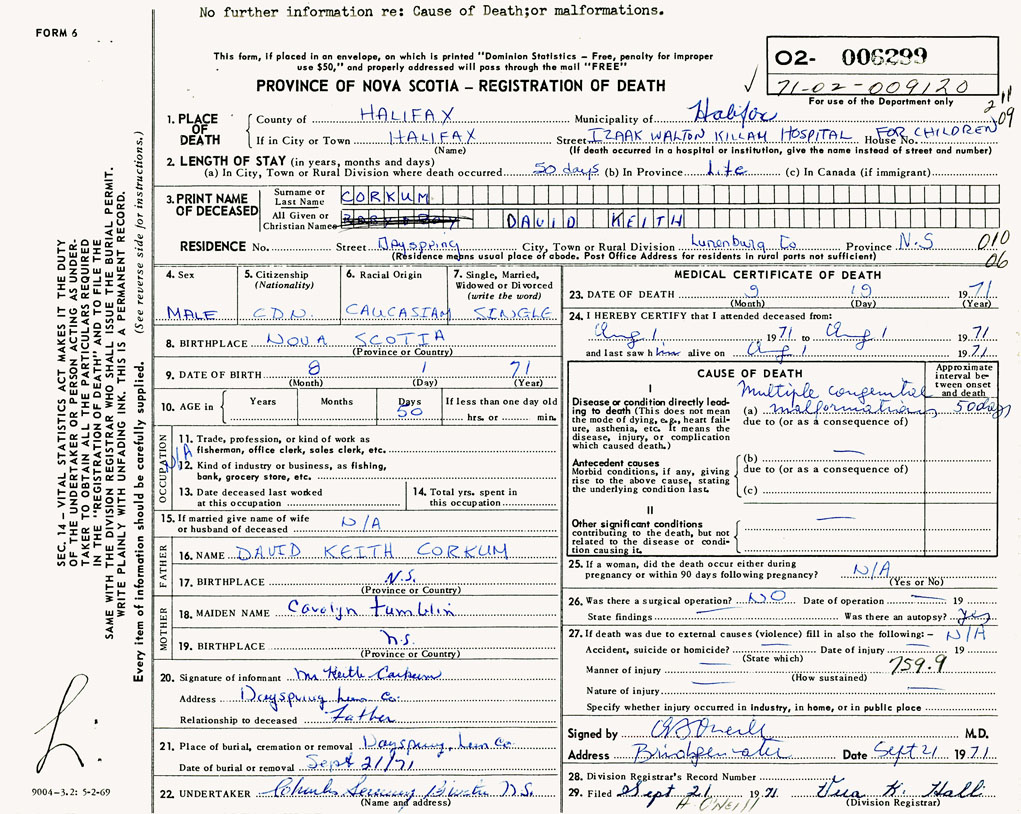 No further information re: Cause of Death;or malformations.
FORM 6
This form, if placed in an envelope, on which is printed "Dominion Statistics – Free, penalty for improper
use $50," and properly addressed will pass through the mail "FREE"
PROVINCE OF NOVA SCOTIA – REGISTRATION OF DEATH
O2- 006299
71-02-009120
For use of the Department only
2 11
09
1. PLACE OF DEATH
County of HALIFAX Municipality of Halifax
If in City or Town HALIFAX Street IZAAK WALTON KILLAM HOSPITAL FOR CHILDREN House No.
(Name) (If death occurred in a hospital or institution, give the name instead of street and number)
2. LENGTH OF STAY (in years, months and days)
(a) In City, Town or Rural Division where death occurred 50 days (b) In Province Life (c) In Canada (if immigrant)
3. PRINT NAME OF DECEASED
Surname or Last Name CORKUM
All Given or Christian Names DAVID KEITH
RESIDENCE No. Street Dayspring City, Town or Rural Division Lunenburg Co Province N.S
(Residence means usual place of abode. Post Office Address for residents in rural parts not sufficient)
010
06
4. Sex
MALE
5. Citizenship
(Nationality)
CDN.
6. Racial Origin
CAUCASIAN
7. Single, Married,
Widowed or Divorced
(write the word)
SINGLE
8. BIRTHPLACE NOVA SCOTIA
(Province or Country)
9. DATE OF BIRTH 8 1 71
(Month) (Day) (Year)
10. AGE in Years Months Days 50 If less than one day old
hrs. or min.
OCCUPATION
N/A
11. Trade, profession, or kind of work as
fisherman, office clerk, sales clerk, etc.
12. Kind of industry or business, as fishing,
bank, grocery store, etc.
13. Date deceased last worked
at this occupation
14. Total yrs. spent in
this occupation
15. If married give name of wife
or husband of deceased N/A
FATHER
16. NAME DAVID KEITH CORKUM
17. BIRTHPLACE N.S.
(Province or Country)
MOTHER
18. MAIDEN NAME Carolyn Tumblin
19. BIRTHPLACE N.S.
(Province or Country)
20. Signature of informant Mr Keith Corkum
Address Dayspring Lun Co.
Relationship to deceased Father
21. Place of burial, cremation or removal Dayspring, Lun Co
Date of burial or removal Sept 21/71
22. UNDERTAKER Charles N.S.
(Name and address)
MEDICAL CERTIFICATE OF DEATH
23. DATE OF DEATH 9 19 1971
(Month) (Day) (Year)
24. I HEREBY CERTIFY that I attended deceased from:
Aug 1 1971 to Aug 1 1971
and last saw him alive on Aug 1 1971
CAUSE OF DEATH
Approximate
interval be-
tween onset
and death
I
Disease or condition directly lead-
ing to death (This does not mean
the mode of dying, e.g., heart fail-
ure, asthenia, etc. It means the
disease, injury, or complication
which caused death.)
Multiple congenital
(a) malformations 50 days
due to (or as a consequence of)
Antecedent causes
Morbid conditions, if any, giving
rise to the above cause, stating
the underlying condition last.
(b)
due to (or as a consequence of)
(c)
II
Other significant conditions
contributing to the death, but not
related to the disease or condi-
tion causing it.
25. If a woman, did the death occur either during
pregnancy or within 90 days following pregnancy? N/A
(Yes or No)
26. Was there a surgical operation? NO Date of operation 19
State findings Was there an autopsy? Yes
27. If death was due to external causes (violence) fill in also the following: – N/A
Accident, suicide or homicide? Date of injury 19
(State which)
759.9
Manner of injury
(How sustained)
Nature of injury
Specify whether injury occurred in industry, in home, or in public place
Signed by O'Neill M.D.
Address Bridgewater Date Sept 21 1971
28. Division Registrar's Record Number
29. Filed Sept 21 1971 Vera K. Hall
H. O'Neill (Division Registrar)
SEC. 14 – VITAL STATISTICS ACT MAKES IT THE DUTY
OF THE UNDERTAKER OR PERSON ACTING AS UNDER-
TAKER TO OBTAIN ALL THE PARTICULARS REQUIRED
IN THE "REGISTRATION OF DEATH" AND TO FILE THE
SAME WITH THE DIVISION REGISTRAR WHO SHALL ISSUE THE BURIAL PERMIT.
WRITE PLAINLY WITH UNFADING INK. THIS IS A PERMANENT RECORD.
Every item of information should be carefully supplied. (See reverse side for instructions.)
9004-3.2: 5-2-69